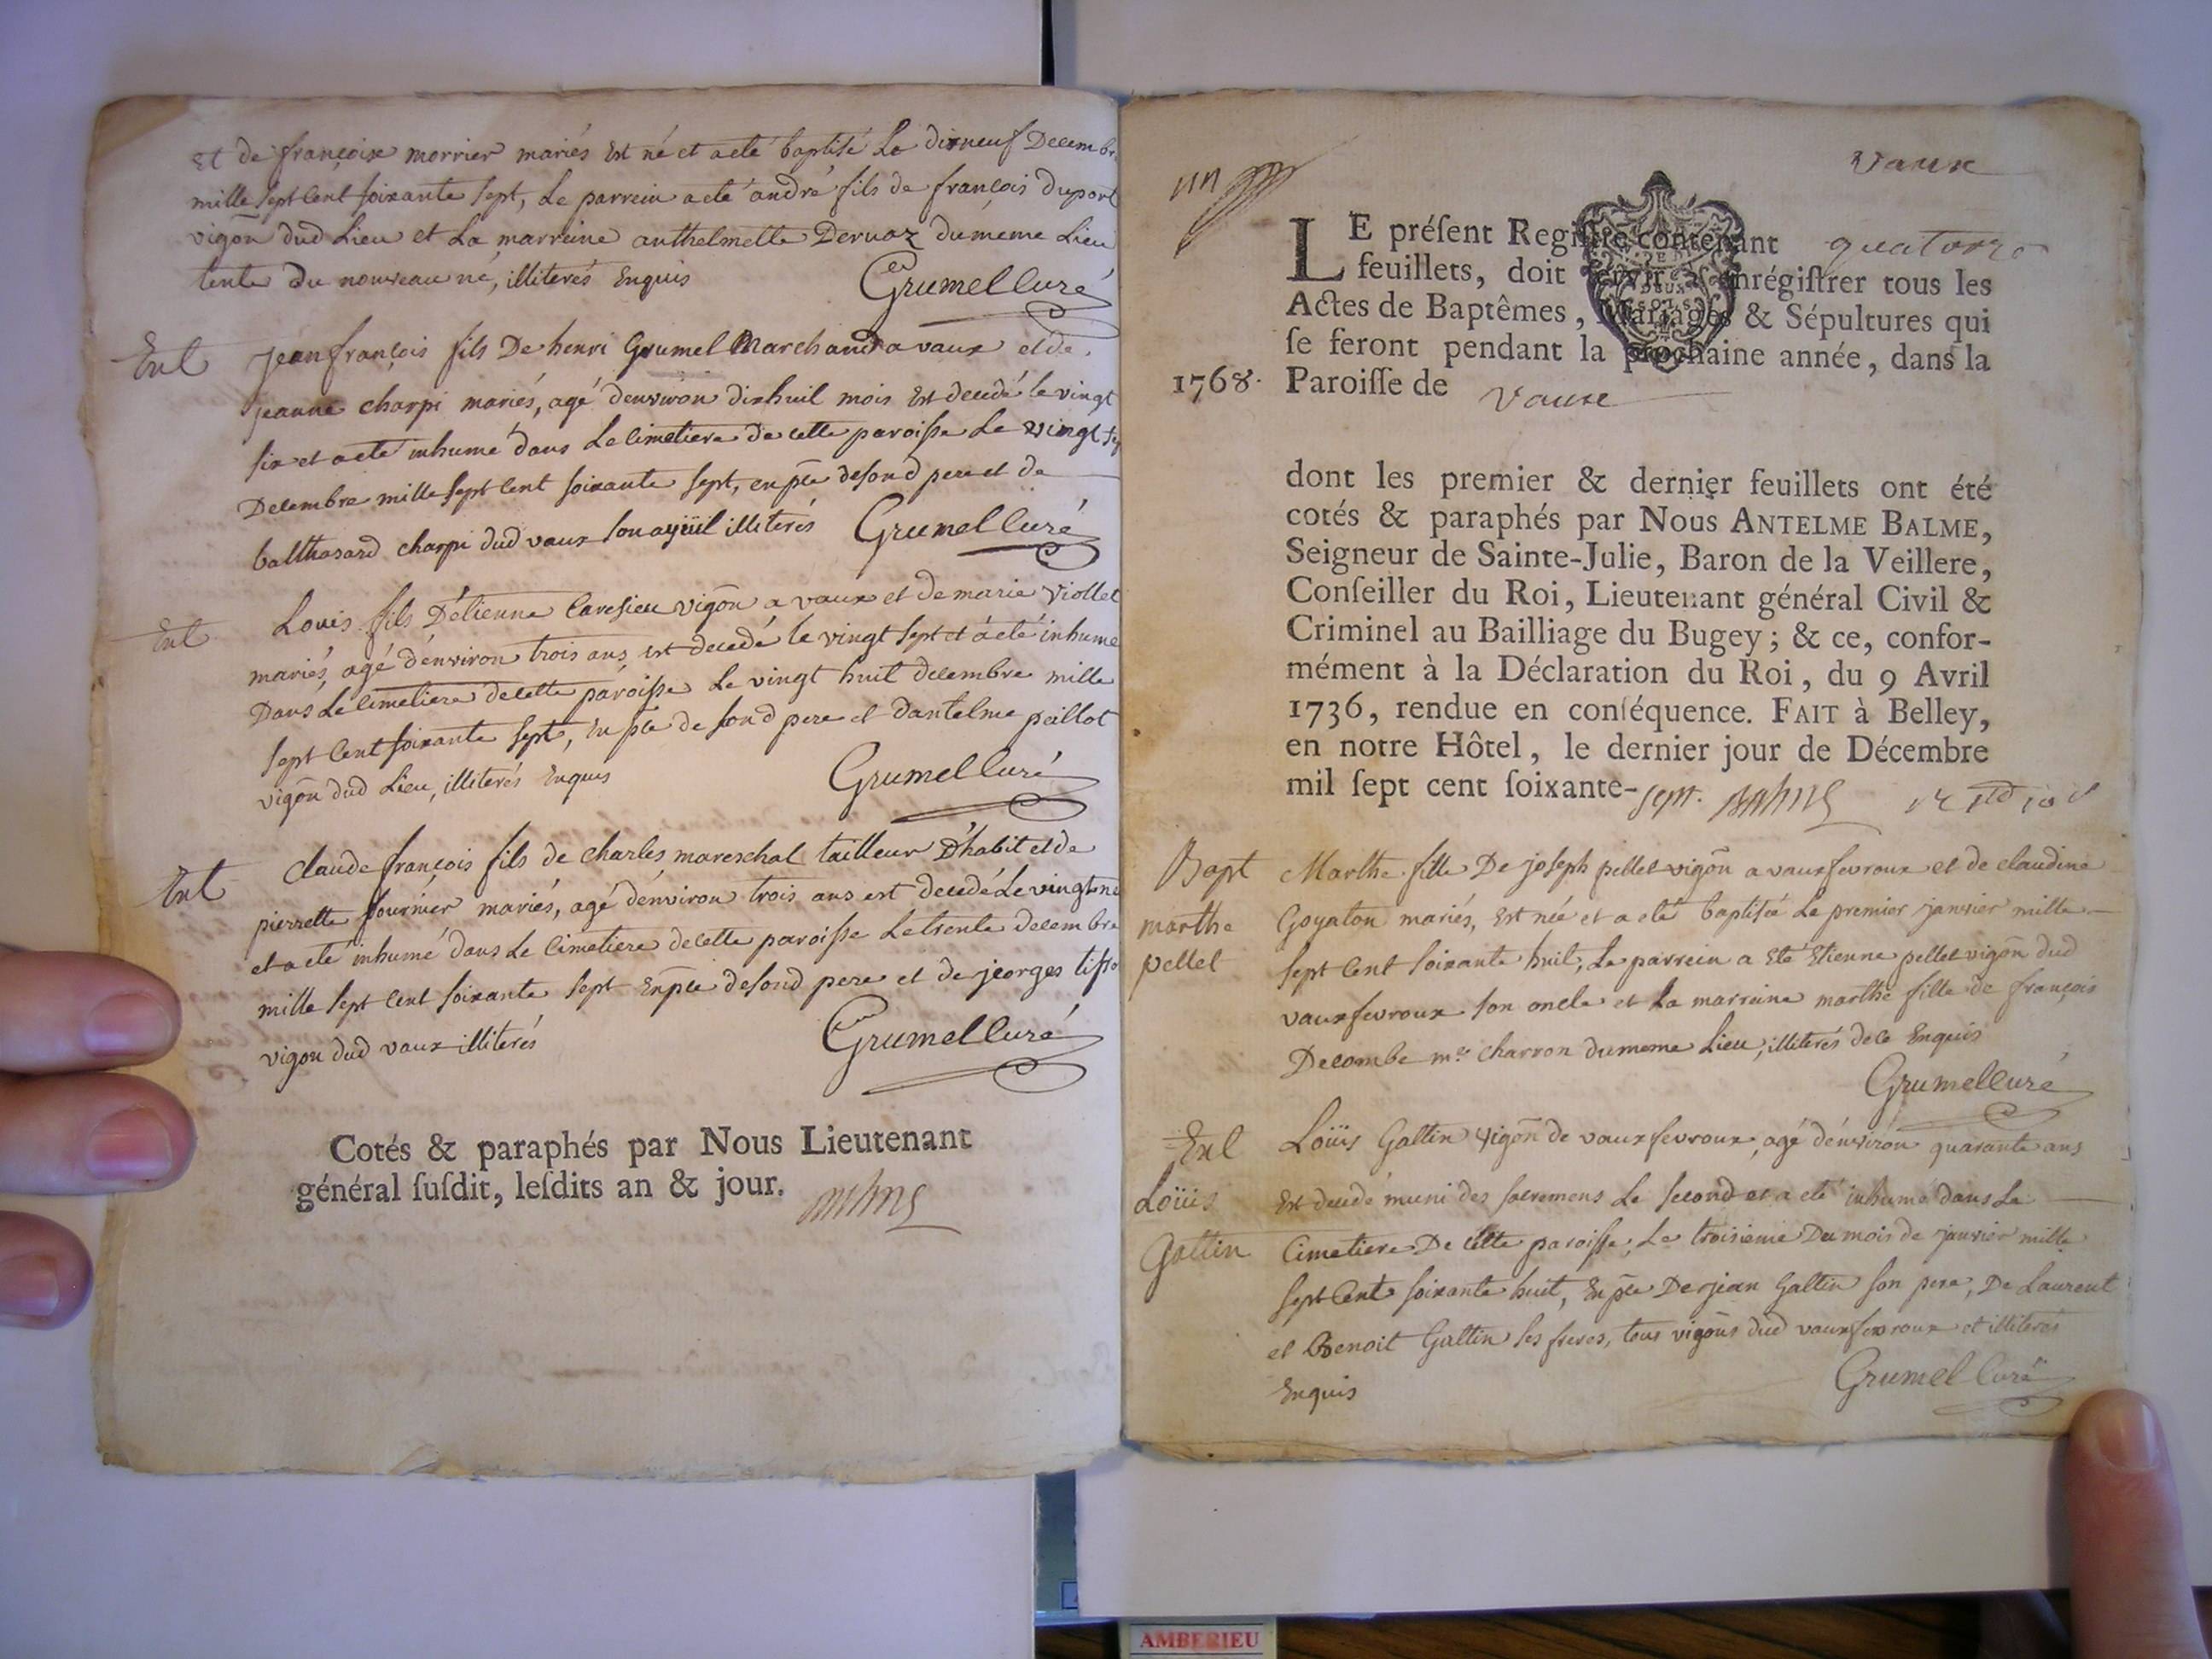 Et de françoise morrier mariés Est né et a eté baptisé Le dixneuf Decembr
mille sept Cent soixante sept, Le parrein a eté andré fils de françois dupont
vigõn dud Lieu et La marreine anthelmette Dervaz du meme Lieu
tente du nouveau né, illiterés Enquis Grumel Curé
Ent jean françois fils De henri Grumel Marchand a vaux et de
jeanne charpi mariés, agé d'environ dixhuit mois Est decedé le vingt
six et a eté inhumé dans Le Cimetiere de cette paroisse Le vingt sep
Decembre mille sept Cent soixante sept, en pñce de sond pere et de
balthasard charpi dud vaux son ayüil illiterés Grumel Curé
Ent Louis fils D'étienne Caresieu vigõn a vaux et de marie Viollet
mariés, agé d'environ trois ans, est decedé le vingt sept et a eté inhumé
Dans Le Cimetiere de cette paroisse Le vingt huit decembre mille
sept Cent soixante sept, En pñce de sond pere et d'antelme peillot
vigõn dud Lieu, illiterés Enquis Grumel Curé
Ent Claude françois fils de charles mareschal tailleur D'habit et de
pierrette fournier mariés, agé d'environ trois ans est decedé Le vingt ne
et a eté inhumé dans Le Cimetiere de cette paroisse Le trente decembre
mille sept Cent soixante sept En pñce de sond pere et de jeorges
vigon dud vaux illiterés Grumel Curé
Cotés & paraphés par Nous Lieutenant
général susdit, lesdits an & jour.
Vaux
LE présent Registre contenant quatorze
feuillets, doit servir à enrégistrer tous les
Actes de Baptêmes, Mariages & Sépultures qui
se feront pendant la prochaine année, dans la
1768. Paroisse de Vaux
dont les premier & dernier feuillets ont été
cotés & paraphés par Nous ANTELME BALME,
Seigneur de Sainte-Julie, Baron de la Veillere,
Conseiller du Roi, Lieutenant général Civil &
Criminel au Bailliage du Bugey; & ce, confor-
mément à la Déclaration du Roi, du 9 Avril
1736, rendue en conséquence. FAIT à Belley,
en notre Hôtel, le dernier jour de Décembre
mil sept cent soixante-sept.
Bapt Marthe fille De joseph pellet vigõn a vauxfevroux et de claudine
marthe Goyaton mariés, Est née et a eté baptisée Le premier janvier mille
pellet sept Cent soixante huit, Le parrein a eté Etienne pellet vigõn dud
vauxfevroux son oncle et La marreine marthe fille de françois
Decombe mre charron du meme Lieu, illiterés de ce Enquis
Grumel Curé
Ent Loüis Galtin vigõn de vauxfevroux, agé d'environ quarante ans
Loüis Est decedé muni des sacremens Le second et a eté inhumé dans Le
Galtin Cimetiere De cette paroisse, Le troisieme Du mois de janvier mille
sept Cent soixante huit, En pñce De jean Galtin son pere, De Laurent
et Benoit Galtin ses freres, tous vigõns dud vauxfevroux et illiterés
Enquis Grumel Curé
AMBERIEU